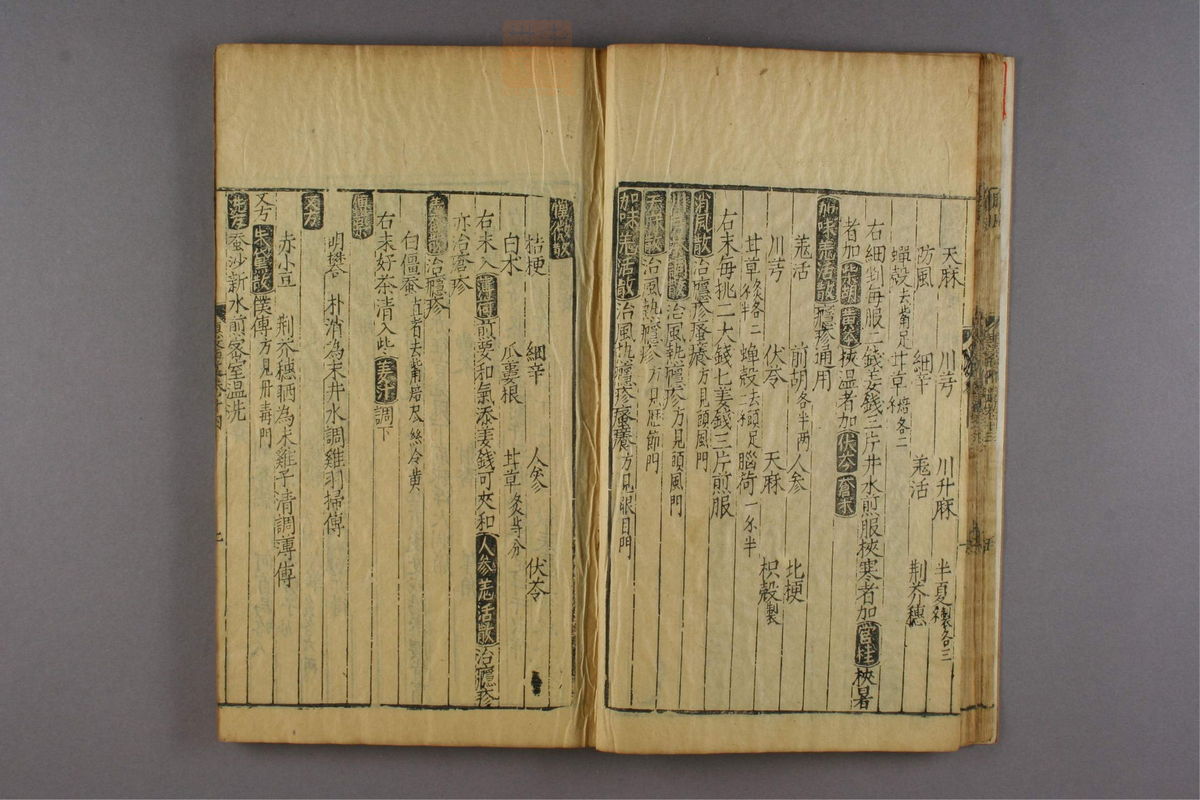 天麻 川芎 川升麻 半夏製各三
防風 細辛 羗活 荆芥穗
蟬殻去觜足 甘草焙各二
右細剉每服二錢姜錢三片井水煎服挾寒者加官桂挾暑
者加柴胡黄芩挾溫者加伏苓蒼朮
加味羗活散 癮疹通用
羗活 前胡各半两 人参 北梗
川芎 伏苓 天麻 枳殻製
甘草炙各二 蟬殻去頭足 腦荷一 半
右末每挑二大錢匕姜錢三片煎服
消風散治癮疹瘙癢方見頭風門
川芎茶調散治風熱癮疹方見頭風門
天保散治風熱癮疹方見歴節門
加味羗活散治風熱癮疹瘙癢方見眼目門
桔梗 細辛 人參 伏苓
白朮 瓜蔞根 甘草炙等分
右末入薄荷煎要和氣添姜錢可夾和人參羗活散治癮疹
亦治磨疹
治癮疹
白僵蚕直者去觜焙 絲令黄
右末好茶清入些姜汁調下
傅藥
明礬 朴消為末井水調雞羽掃傅
又方
赤小豆 荆芥穗晒為末雞子清調薄傅
又方 散 傅方見丹毒門
洗方 蚕沙新水煎密室温洗